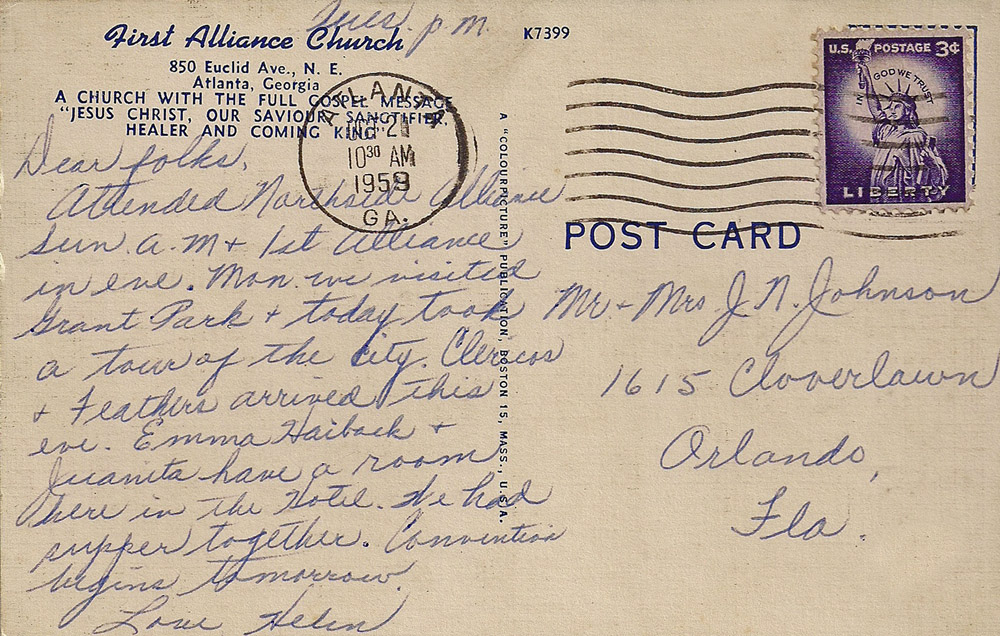 Tues. p.m.
First Alliance Church
850 Euclid Ave., N. E.
Atlanta, Georgia
A CHURCH WITH THE FULL GOSPEL MESSAGE
"JESUS CHRIST, OUR SAVIOUR, SANCTIFIER,
HEALER AND COMING KING"
Dear folks,
Attended Northside Alliance
Sun a.m + 1st Alliance
in eve. Mon. we visited
Grant Park + today took
a tour of the city.
+ Feathers arrived this
eve. Emma Haiback +
Juanita have a room
here in the Hotel. We had
supper together. Convention
begins tomorrow.
Love Helen
A "COLOURPICTURE" PUBLICATION, BOSTON 15, MASS., U.S.A.
K7399
ATLANTA
10 30 AM
1959
GA.
U.S. POSTAGE 3¢
IN GOD WE TRUST
LIBERTY
POST CARD
Mr + Mrs J. N. Johnson
1615 Cloverlawn
Orlando,
Fla.